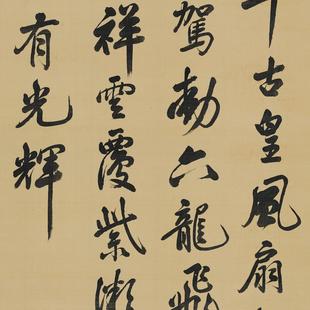 古皇風扇
駕動六龍飛
祥雲覆紫
有光輝